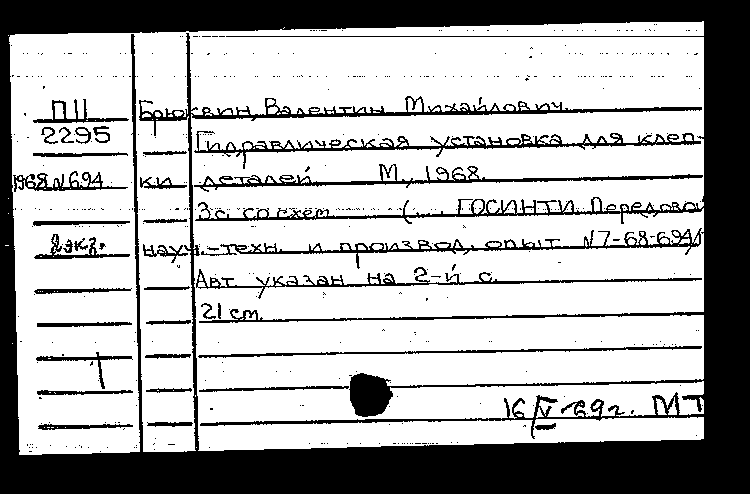 П11 Брюквин, Валентин Михайлович.
2295 Гидравлическая установка для клеп-
1968 N694 ки деталей М., 1968.
3с. со схем. (... ГОСИНТИ. Передовой
2 экз. науч.-техн. и производ. опыт N7-68-694/
Авт. указан на 2-й с.
21 см.
16/V-69г. МТ